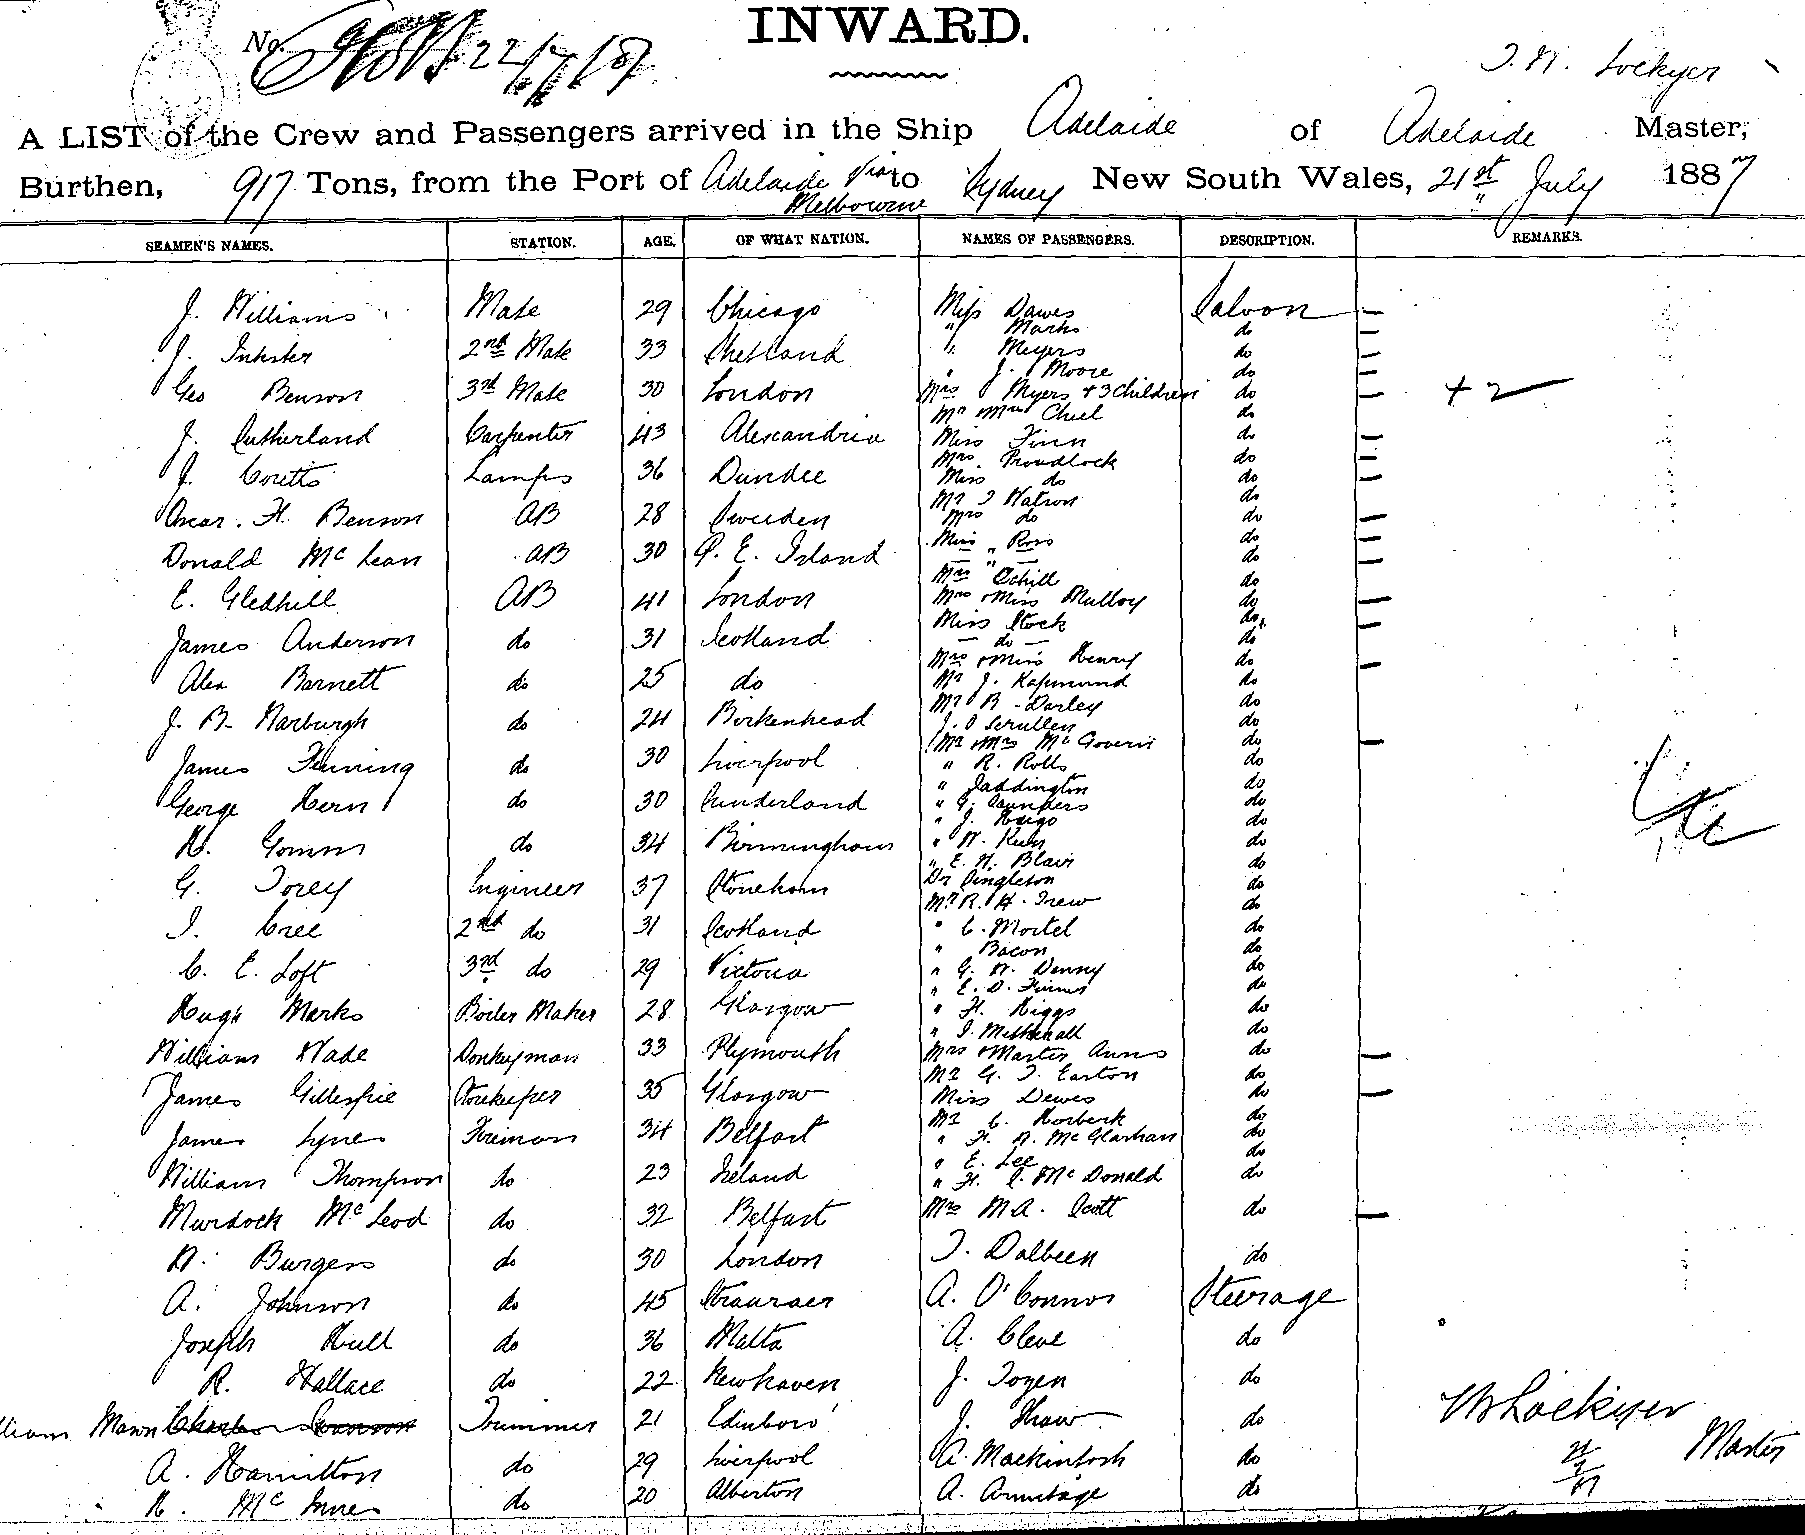 INWARD.
No. 22/7/87
T. N. Lockyer
A LIST of the Crew and Passengers arrived in the Ship Adelaide of Adelaide Master,
Burthen, 917 Tons, from the Port of Adelaide via Melbourne to Sydney New South Wales, 21st July 1887
SEAMEN'S NAMES. STATION. AGE. OF WHAT NATION. NAMES OF PASSENGERS. DESCRIPTION. REMARKS.
J. Williams Mate 29 Chicago Miss Dawes Saloon
" Marks do
J. Inkster 2nd Mate 33 Shetland " Meyers do
" J. Moore do
Geo Benson 3rd Mate 30 London Mrs Myers + 3 Children do + 2
Mr & Mrs Chiel do
J. Sutherland Carpenter 43 Alexandria Miss Finn do
Mrs. Proudlock do
J. Coutts Lamps 36 Dundee Miss do do
Mr J Watson do
Oscar. H. Benson AB 28 Sweeden Mrs do do
Miss " Ross do
Donald McLean AB 30 P. E. Island — " — do
Mrs Cahill do
E. Gledhill AB 41 London Mrs & Miss Mulloy do
Miss Stock do
James Anderson do 31 Scotland — do — do
Mrs & Miss Henry do
Alex Barnett do 25 do Mr J. Raymond do
Mr B. Darley do
J. B. Warburgh do 24 Birkenhead J. O Scrullen do
Mr & Mrs McGovern do
James Finning do 30 Liverpool " R. Rolls do
" Paddington do
George Hern do 30 Sunderland " G. Saunders do
" J. Haigo do
W. Gomm do 34 Birmingham " W. Kuhn do
" E. W. Blair do
G. Torey Engineer 37 Stoneham Dr Singleton do
Mr R. H. Trew do
J. Cree 2nd do 31 Scotland " C. Mortel do
" Bacon do
C. E. Loft 3rd do 29 Victoria " G. W. Denny do
" E. D. Firms do
Hugh Marks Boiler Maker 28 Glasgow " H. Higgs do
" J. Methenall do
William Wade Donkeyman 33 Plymouth Mrs & Master Anns do
Mr G. T. Easton do
James Gillespie Storekeeper 35 Glasgow Miss Dewes do
Mr C. Horbeck do
James Lynes Fireman 34 Belfast " H. A. McGlashan do
" E. Lee do
William Thompson do 23 Ireland " H. C. McDonald do
Murdock McLeod do 32 Belfast Mrs M A. Scott do
W. Burgess do 30 London T. Dalbeen do
A. Johnson do 45 Stranraer A. O'Connor Steerage
Joseph Hull do 36 Malta A. Cleve do
R. Wallace do 22 Newhaven J. Togen do
lliam Mawn Charles Swanson Trimmer 21 Edinboro' J. Shaw do
A. Hamilton do 29 Liverpool A. Mackintosh do
R. McInnes do 20 Alberton A. Armitage do
Lockyer Master